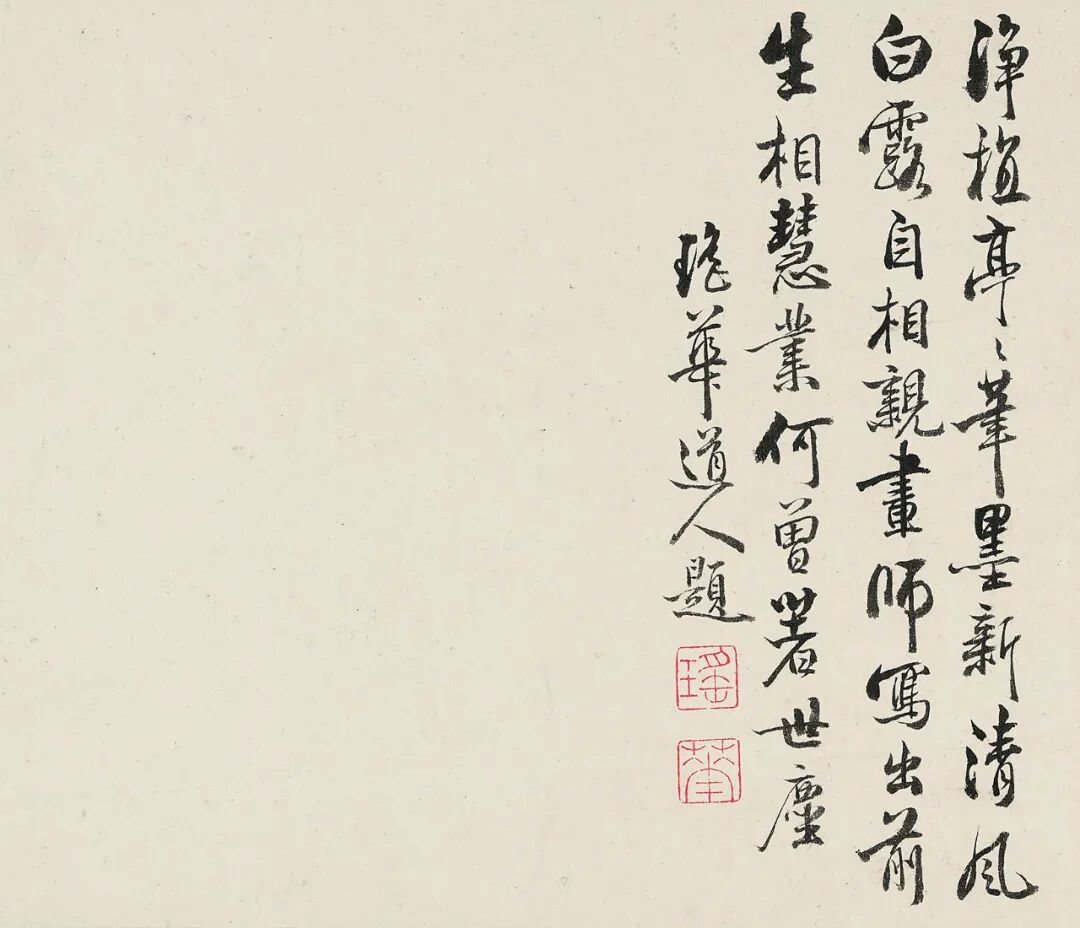 淨植亭〻筆墨新清風
白露自相親畫師寫出前
生相慧業何曾著世塵
瑤華道人題
瑤
華